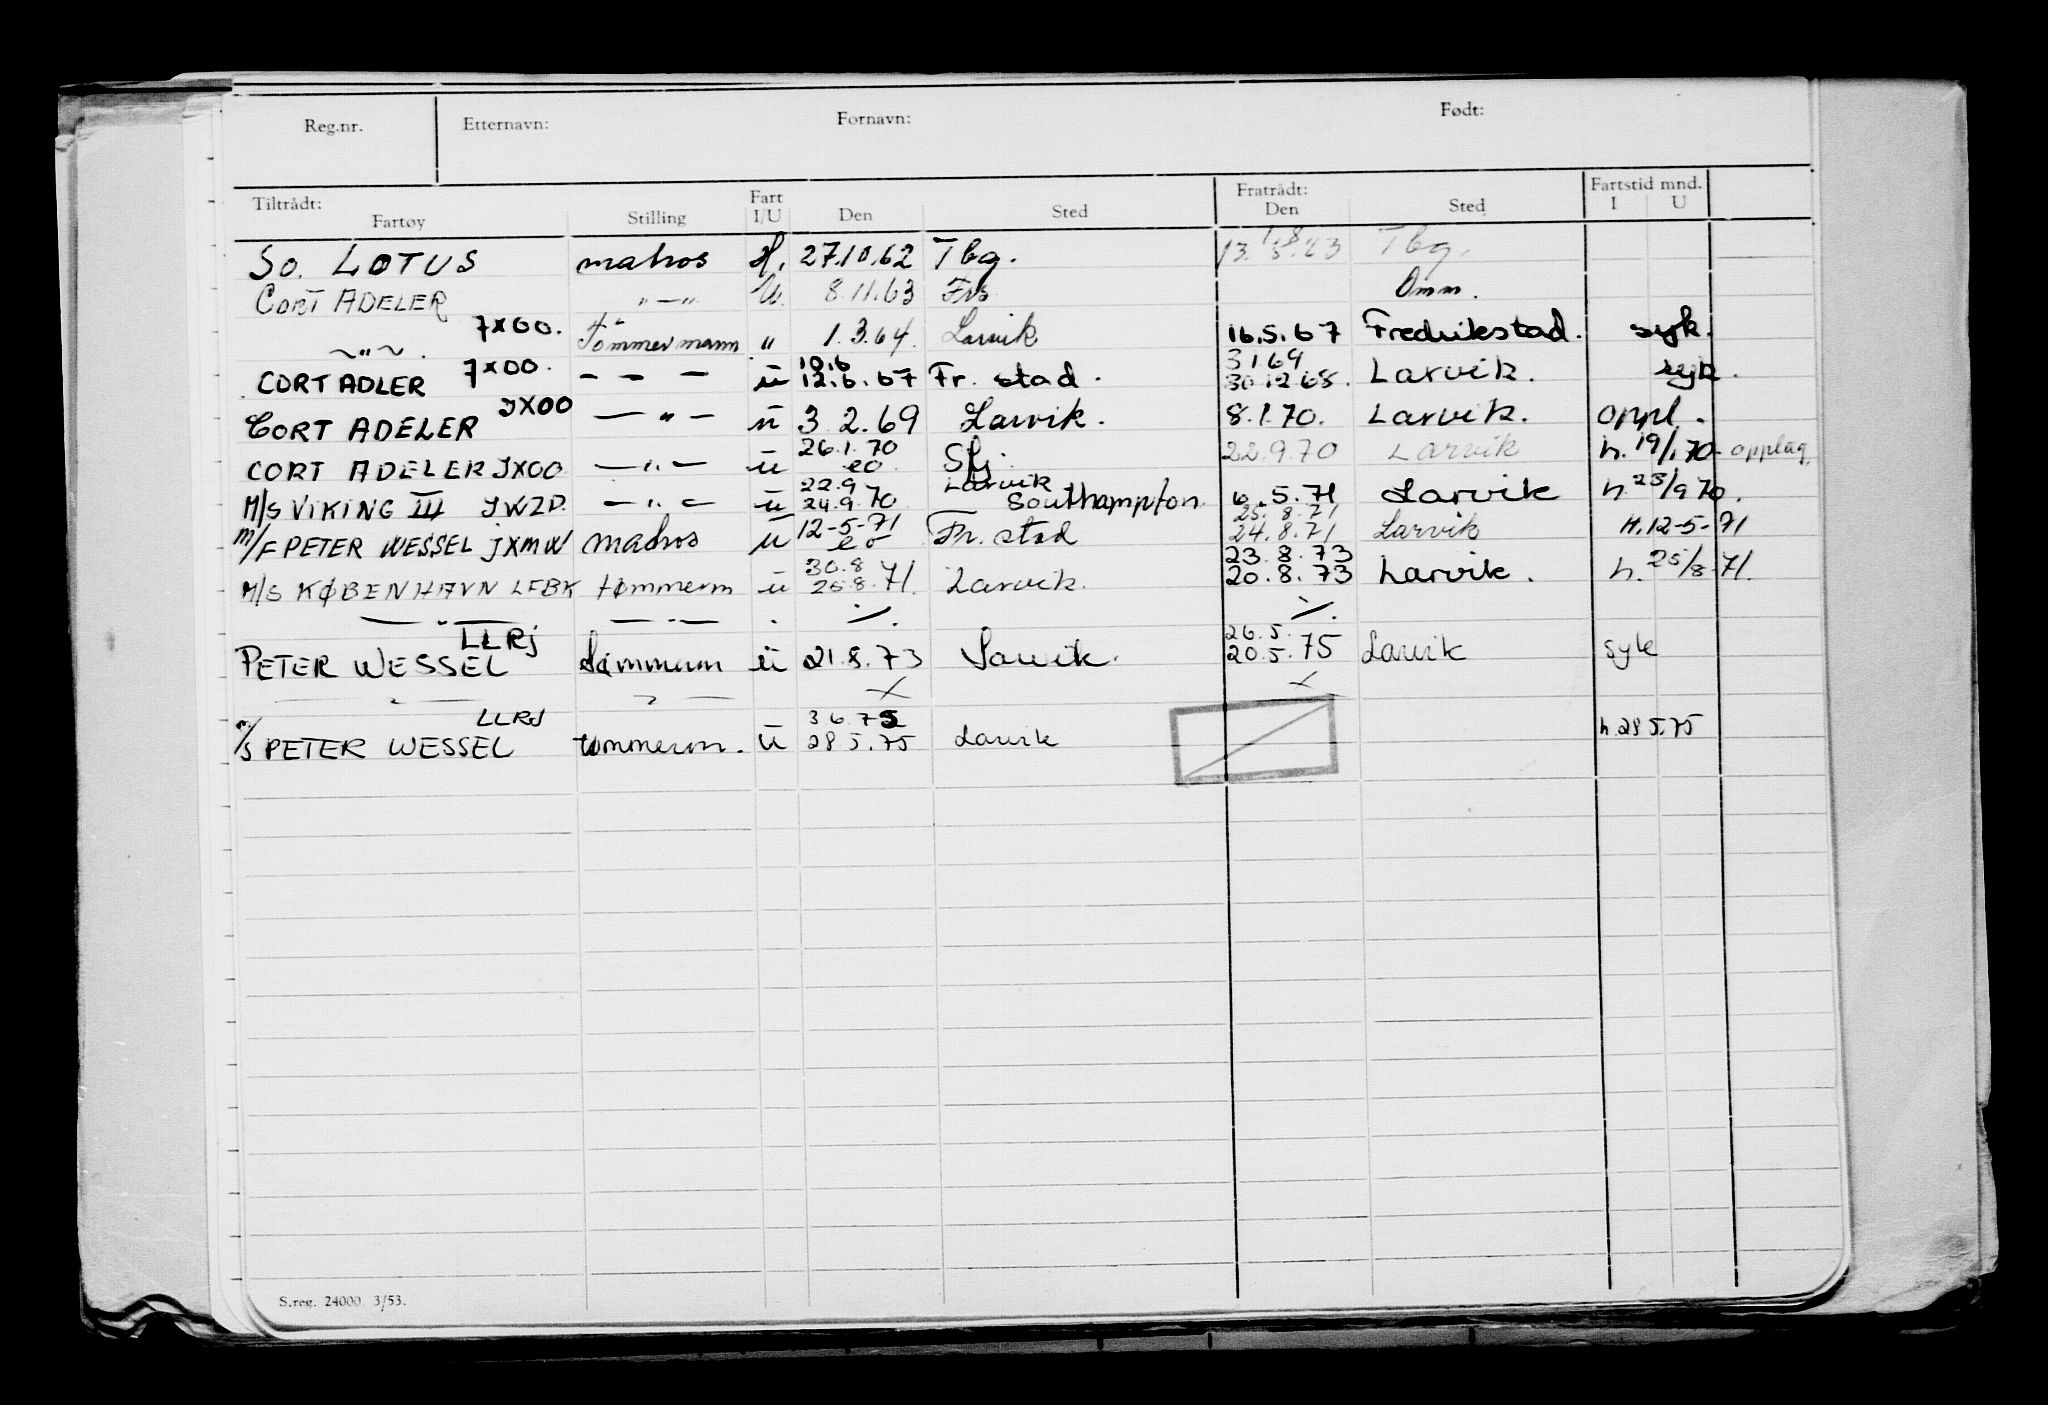 Reg.nr. Etternavn: Fornavn: Født:
Tiltrådt: Fartøy Stilling Fart I/U Den Sted Fratrådt: Den Sted Fartstid mnd. I U
So. LOTUS matros H. 27.10.62 Tbg. 13.8.63 Tbg.
CORT ADELER "—" U. 8.11.63 Frs Omm.
~"~ . 7X00. Tømmermann " 1.3.64. Larvik 16.5.67 Fredrikstad. syk.
CORT ADLER 7X00. — — — ü 10.6 12.6.67 Fr. stad. 3169 30.12.68. Larvik. syk.
CORT ADELER JXOO —"— ü 3.2.69 Larvik. 8.1.70. Larvik. oppl.
CORT ADELER JXOO —"— ü 26.1.70 eo. Sfj. 22.9.70 Larvik h. 19/1.70- opplag.
M/S VIKING III JWZD. —"— ü 22.9 24.9.70 Larvik Southampton. 6.5.71 Larvik h. 23/9 70.
M/F PETER WESSEL JXMW matros ü 12-5-71 eo Fr. stad 25.8.71 24.8.71 Larvik H. 12-5-71
M/S KØBENHAVN LFBK tømmerm ü 30.8 25.8.71. Larvik. 23.8.73 20.8.73 Larvik. h. 25/8.71.
—"— —"— . ./. ./.
PETER WESSEL LLRJ tømmerm ü 21.8.73 Larvik. 26.5. 20.5.75 Larvik syk
—"— " — X X
M/S PETER WESSEL LLRJ tømmerm. ü 3 6.75 28 5.75 Larvik h. 28 5.75
S.reg. 24000. 3/53.